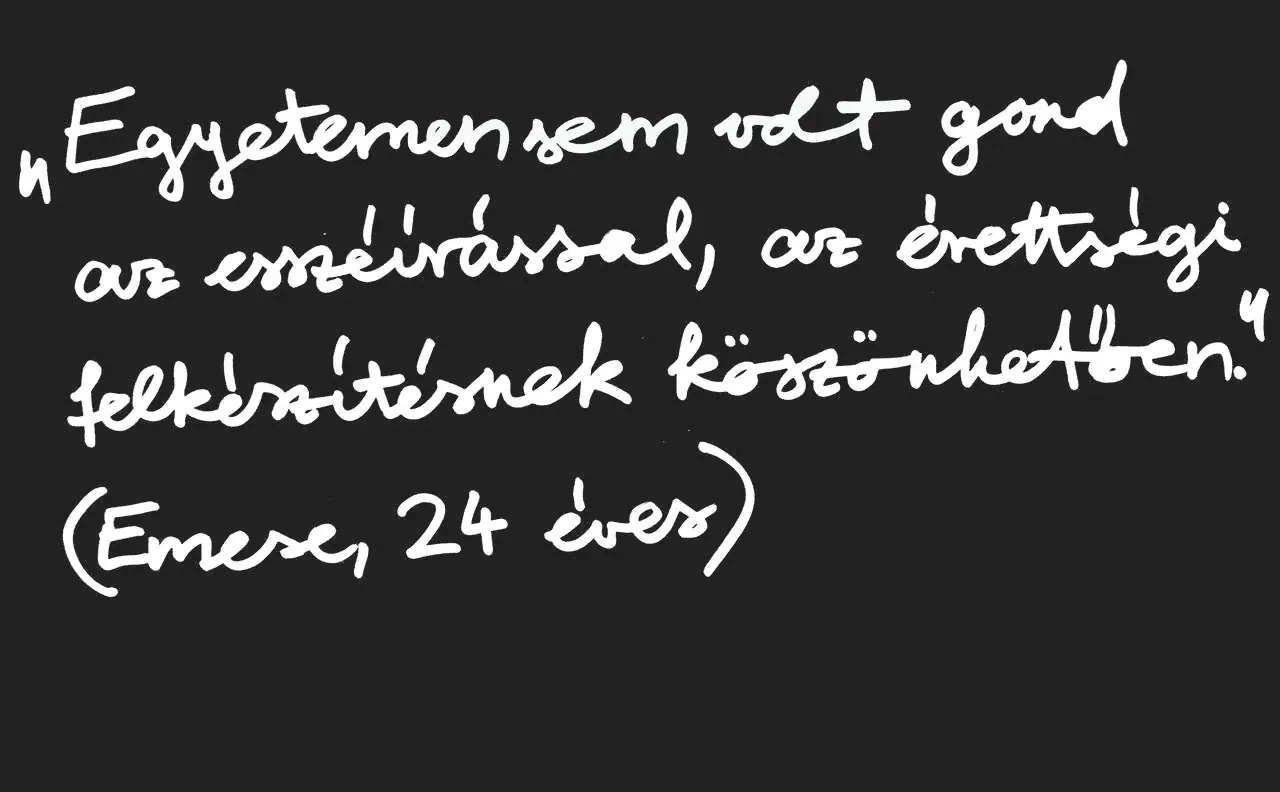 „Egyetemen sem volt gond
az esszéírással, az érettségi
felkészítésnek köszönhetően.”
(Emese, 24 éves)